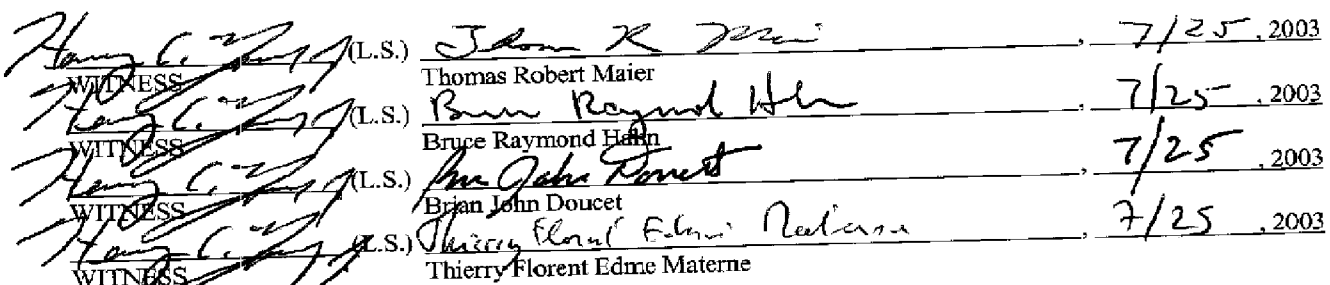 (L.S.) , 7/25, 2003
WITNESS Thomas Robert Maier
(L.S.) Bruce Raymond Hahn , 7/25, 2003
WITNESS Bruce Raymond Hahn
(L.S.) John Doucet 7/25, 2003
WITNESS Brian John Doucet
(L.S.) Thierry Florent Edme Materne , 7/25, 2003
WITNESS Thierry Florent Edme Materne